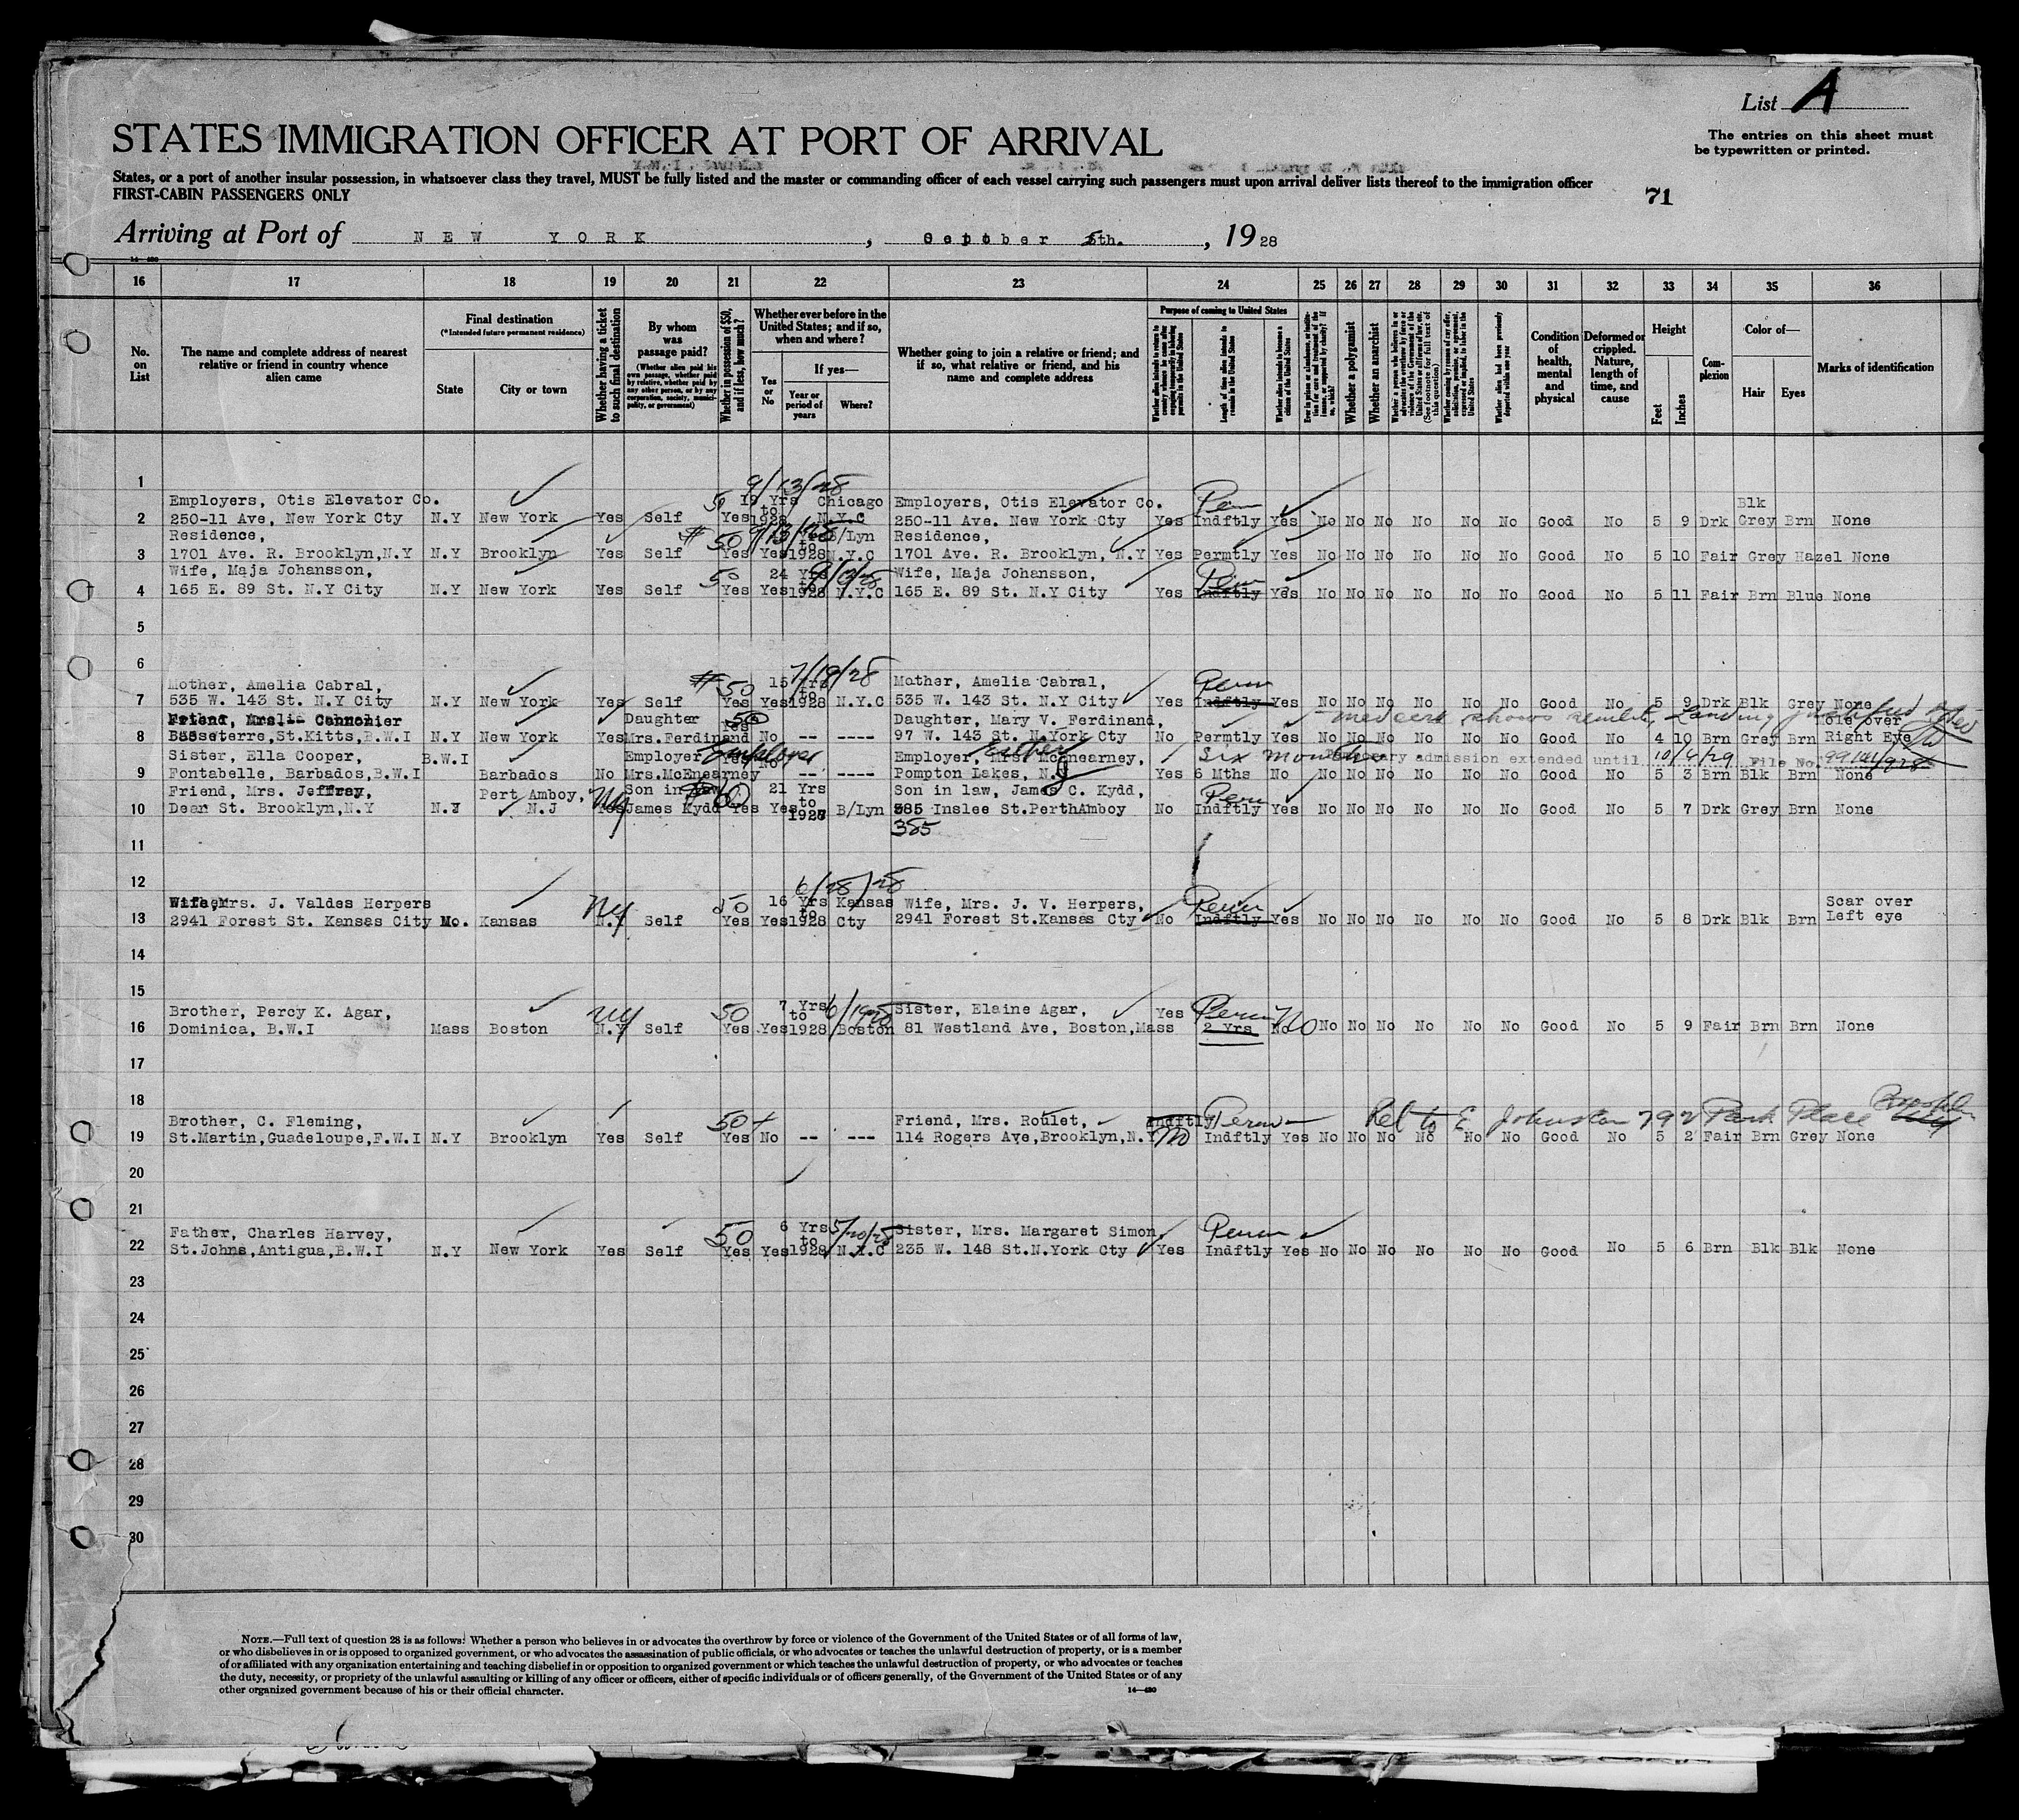 List A
STATES IMMIGRATION OFFICER AT PORT OF ARRIVAL
The entries on this sheet must
be typewritten or printed.
States, or a port of another insular possession, in whatsoever class they travel, MUST be fully listed and the master or commanding officer of each vessel carrying such passengers must upon arrival deliver lists thereof to the immigration officer
FIRST-CABIN PASSENGERS ONLY
71
Arriving at Port of NEW YORK, 5th., 1928
16 17 18 19 20 21 22 23 24 25 26 27 28 29 30 31 32 33 34 35 36
No. on List
The name and complete address of nearest relative or friend in country whence alien came
Final destination
(*Intended future permanent residence)
State
City or town
Whether having a ticket to such final destination
By whom was passage paid?
(Whether alien paid his own passage, whether paid by relative, whether paid by any other person, or by any corporation, society, municipality, or government)
Whether in possession of $50, and if less, how much?
Whether ever before in the United States; and if so, when and where?
Yes or No
If yes—
Year or period of years
Where?
Whether going to join a relative or friend; and if so, what relative or friend, and his name and complete address
Purpose of coming to United States
Length of time alien intends to remain in the United States
Whether alien intends to become a citizen of the United States
Whether a polygamist
Whether an anarchist
Condition of health, mental and physical
Deformed or crippled. Nature, length of time, and cause
Height
Feet
Inches
Complexion
Color of—
Hair
Eyes
Marks of identification
1
9/13/28
Employers, Otis Elevator Co. 50 19 Yrs to Chicago Employers, Otis Elevator Co. Perm Blk
2 250-11 Ave, New York Cty N.Y New York Yes Self Yes 1928 N.Y.C 250-11 Ave. New York Cty Yes Indftly Yes No No No No No No Good No 5 9 Drk Grey Brn None
Residence, $50 B/Lyn Residence,
3 1701 Ave. R. Brooklyn,N.Y N.Y Brooklyn Yes Self Yes Yes 1928 N.Y.C 1701 Ave. R. Brooklyn, N.Y Yes Permtly Yes No No No No No No Good No 5 10 Fair Grey Hazel None
Wife, Maja Johansson, 50 24 Yrs Wife, Maja Johansson, Perm
4 165 E. 89 St. N.Y City N.Y New York Yes Self Yes Yes 1928 N.Y.C 165 E. 89 St. N.Y City Yes Indftly Yes No No No No No No Good No 5 11 Fair Brn Blue None
5
6
7/19/28
Mother, Amelia Cabral, $50 15 Yrs to Mother, Amelia Cabral, Perm
7 535 W. 143 St. N.Y City N.Y New York Yes Self Yes Yes 1928 N.Y.C 535 W. 143 St. N.Y City Yes Indftly Yes No No No No No No Good No 5 9 Drk Blk Grey None
Daughter 50 Daughter, Mary V. Ferdinand, Med cert shows senility, Landing Mole over
8 Basseterre,St.Kitts,B.W.I N.Y New York Yes Mrs.Ferdinand No -- ---- 97 W. 143 St. N.York Cty No Permtly Yes No No No No No No Good No 4 10 Brn Grey Brn Right Eye
Sister, Ella Cooper, B.W.I Employer Employer Employer, Mrs. McEnearney, Esther Six months admission extended until 10/4/29 File No.
9 Fontabelle, Barbados,B.W.I Barbados No Mrs.McEnearney No -- ---- Pompton Lakes, N.J Yes 6 Mths No No No No No No No Good No 5 3 Brn Blk Brn None
Friend, Mrs. Jeffrey, Pert Amboy, Son in law 21 Yrs to Son in law, James C. Kydd, Perm
10 Dean St. Brooklyn,N.Y N.J N.J Yes James Kydd Yes Yes B/Lyn 385 Inslee St.PerthAmboy No Indftly Yes No No No No No No Good No 5 7 Drk Grey Brn None
385
11
12
6/28/28
Wife,Mrs. J. Valdes Herpers NY 50 16 Yrs to Kansas Wife, Mrs. J. V. Herpers, Perm Scar over
13 2941 Forest St. Kansas City Mo. Kansas N.Y Self Yes Yes 1928 Cty 2941 Forest St.Kansas Cty No Indftly Yes No No No No No No Good No 5 8 Drk Blk Brn Left eye
14
15
Brother, Percy K. Agar, NY 50 7 Yrs to Sister, Elaine Agar, Yes Perm
16 Dominica, B.W.I Mass Boston N.Y Self Yes Yes 1928 Boston 81 Westland Ave, Boston,Mass 2 Yrs No No No No No No No No Good No 5 9 Fair Brn Brn None
17
18
Brother, C. Fleming, 50+ Friend, Mrs. Roulet, Indftly Perm Rel to E Johnston 792 Park Place Brooklyn
19 St.Martin,Guadeloupe,F.W.I N.Y Brooklyn Yes Self Yes No -- --- 114 Rogers Ave,Brooklyn,N.Y No Indftly Yes No No No No No No Good No 5 2 Fair Brn Grey None
20
21
Father, Charles Harvey, 50 6 Yrs to 5/20/28 Sister, Mrs. Margaret Simon, Perm
22 St.Johns,Antigua,B.W.I N.Y New York Yes Self Yes Yes 1928 N.Y.C 235 W. 148 St.N.York Cty Yes Indftly Yes No No No No No No Good No 5 6 Brn Blk Blk None
23
24
25
26
27
28
29
30
NOTE.—Full text of question 28 is as follows: Whether a person who believes in or advocates the overthrow by force or violence of the Government of the United States or of all forms of law,
or who disbelieves in or is opposed to organized government, or who advocates the assassination of public officials, or who advocates or teaches the unlawful destruction of property, or is a member
of or affiliated with any organization entertaining and teaching disbelief in or opposition to organized government or which teaches the unlawful destruction of property, or who advocates or teaches
the duty, necessity, or propriety of the unlawful assaulting or killing of any officer or officers, either of specific individuals or of officers generally, of the Government of the United States or of any
other organized government because of his or their official character.
14—430